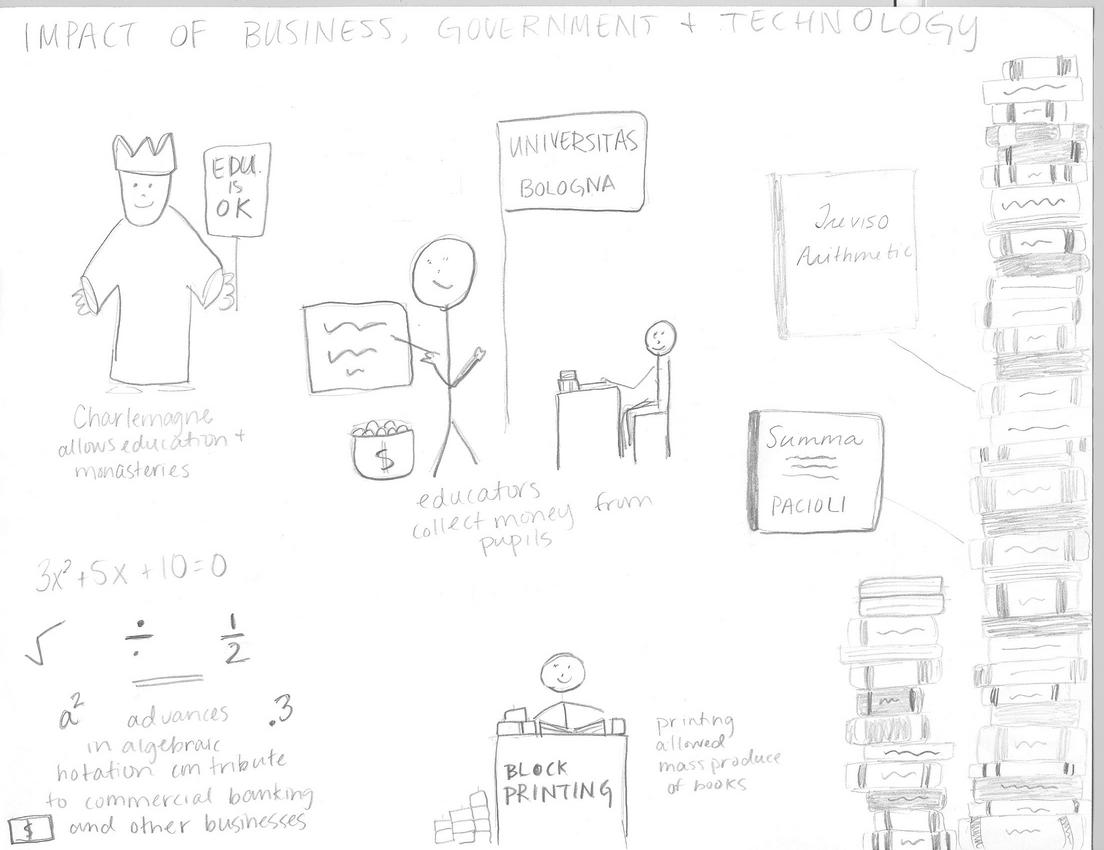 IMPACT OF BUSINESS, GOVERNMENT + TECHNOLOGY
EDU.
IS
OK
Charlemagne
allows education +
monasteries
UNIVERSITAS
BOLOGNA
$
educators
collect money from
pupils
Treviso
Arithmetic
Summa
PACIOLI
3x²+5x+10=0
√ ÷ 1/2
=
a² advances .3
in algebraic
notation contribute
to commercial banking
$ and other businesses
BLOCK
PRINTING
printing
allowed
mass produce
of books